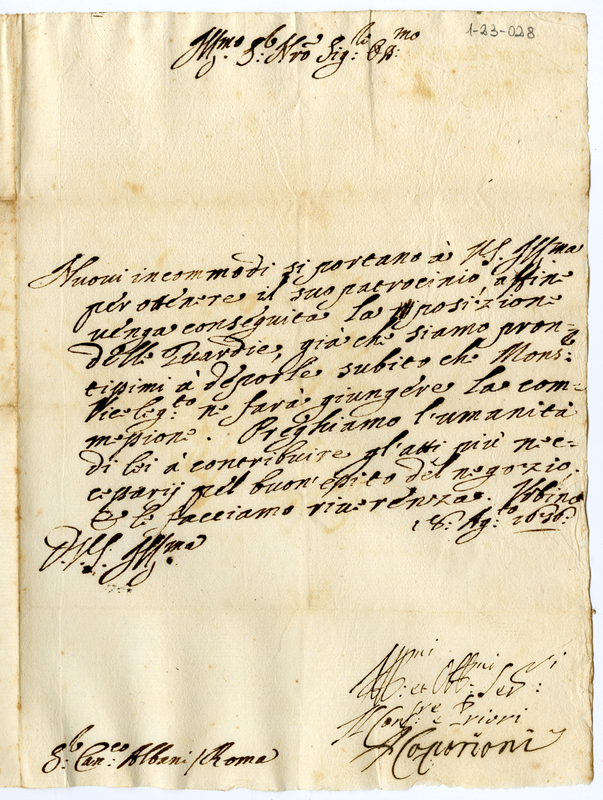 1-23-028
Ill.mo S.r Nro Sig.re
Nuovi incommodi si portano à V.S. Ill.ma
per ottenere il suo patrocinio, affine
venga conseguita la posizione
delle Guardie, già che siamo pron-
tissimi à deporle subito che Mons.r
Viceleg.to ne farà giungere la com-
messione. Preghiamo l'umanità
di lei à contribuire gl'atti più nec-
cessarij pel buon'esito del negozio.
E le facciamo riverenza. Urbino
18: Ag.to 1696:
D. V.S. Ill.ma
Aff.mi et Obb.mi Ser.ri
Il Conf.re e Priori
S.r Can.co Albani / Roma